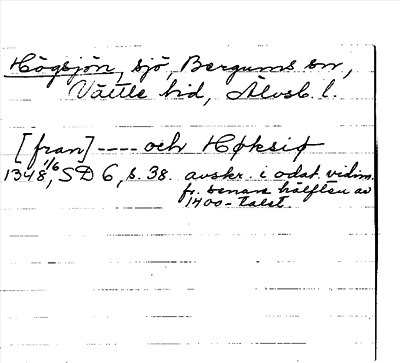 Högsjön, sjö, Bergums sn,
Vättle hd, Älvsb. l.
[fran] ---- och Høksiø
1348 1/6, SD 6, s. 38. avskr. i odat. vidim.
fr. senare hälften av
1400-talet.